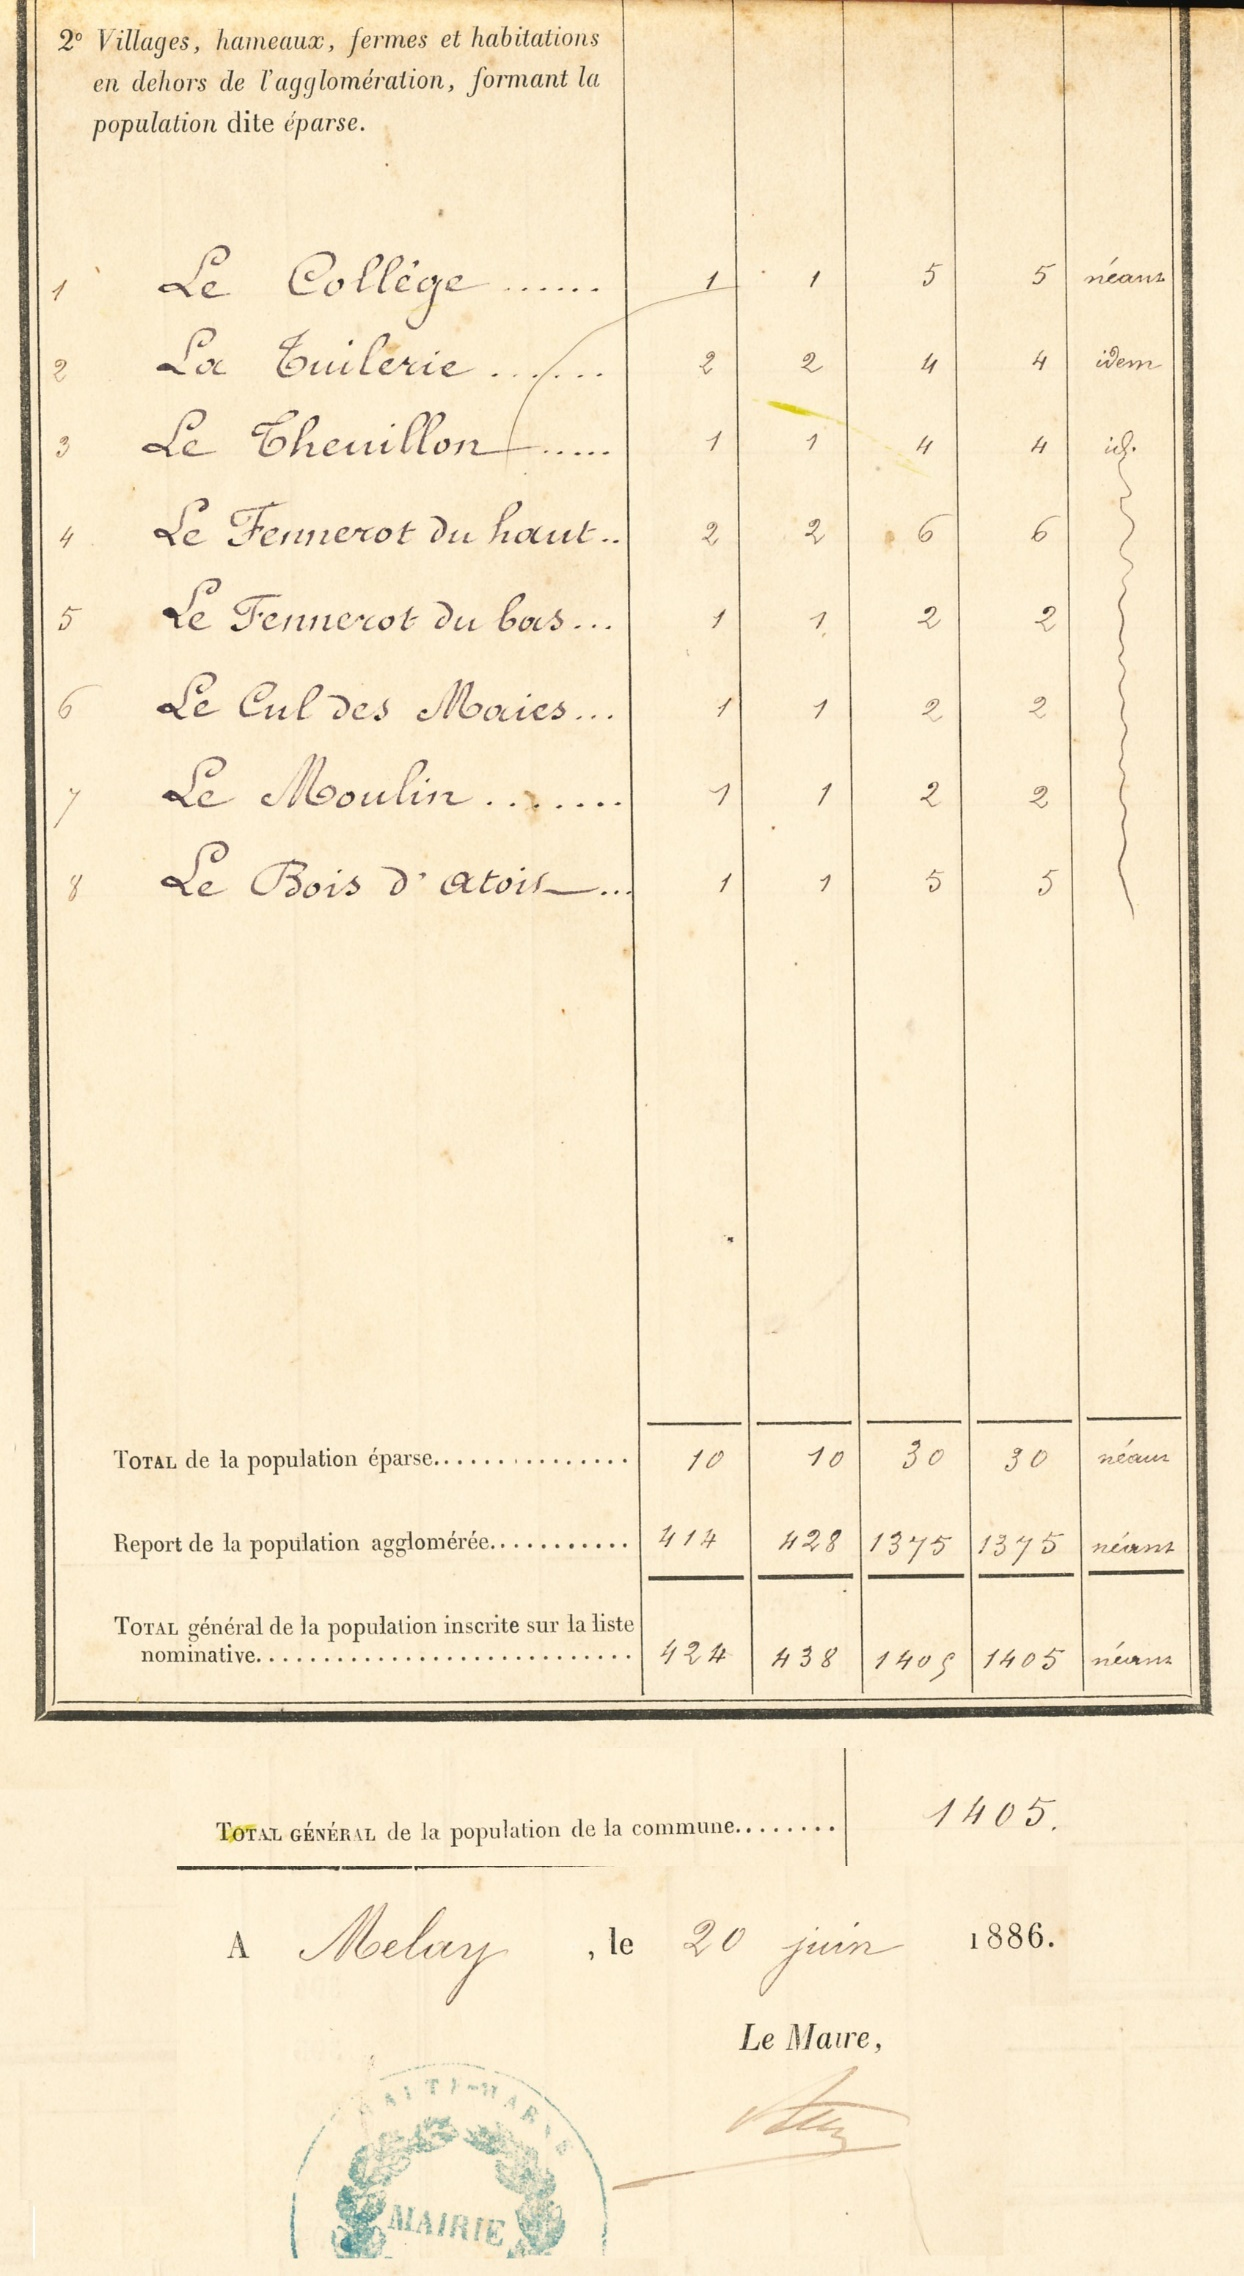 2º Villages, hameaux, fermes et habitations
en dehors de l'agglomération, formant la
population dite éparse.
1 Le Collège ...... 1 1 5 5 néant
2 La Tuilerie ...... 2 2 4 4 idem
3 Le Theuillon ..... 1 1 4 4 id.
4 Le Fennerot du haut .. 2 2 6 6
5 Le Fennerot du bas ... 1 1 2 2
6 Le Cul des Maies ... 1 1 2 2
7 Le Moulin ....... 1 1 2 2
8 Le Bois d'atois ... 1 1 5 5
TOTAL de la population éparse............... 10 10 30 30 néant
Report de la population agglomérée........... 414 428 1375 1375 néant
TOTAL général de la population inscrite sur la liste
nominative............................ 424 438 1405 1405 néant
TOTAL GÉNÉRAL de la population de la commune........ 1405.
A Melay, le 20 juin 1886.
Le Maire,
HAUTE-MARNE
MAIRIE